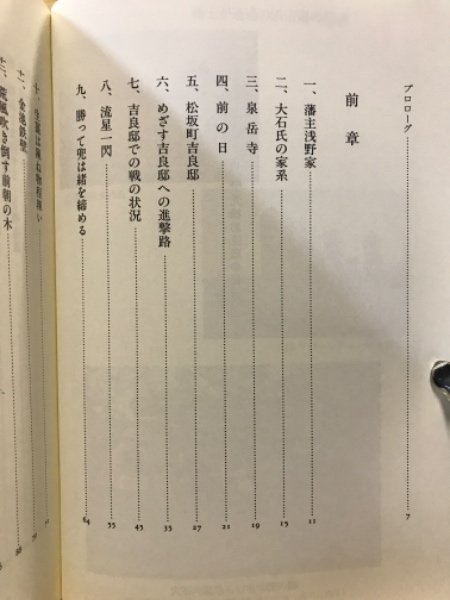 プロローグ 7
前章
一、藩主浅野家 11
二、大石氏の家系 15
三、泉岳寺 19
四、前の日 21
五、松坂町吉良邸 27
六、めざす吉良邸への進撃路 35
七、吉良邸での戦の状況 43
八、流星一閃 55
九、勝って兜は緒を締める 64
十、
十一、金湯鉄壁
十二、颱風吹き倒す前朝の木